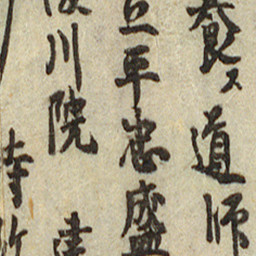 養ス道師
平忠盛
川院 建
寺